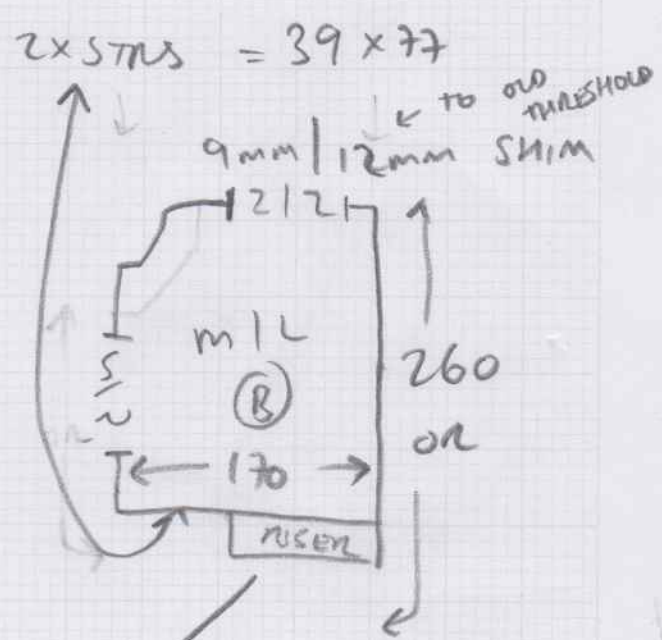 2 x STRS = 39 x 77
TO OLD
THRESHOLD
9mm | 12mm SHIM
2121
m/L
260
B
OR
170
RISER